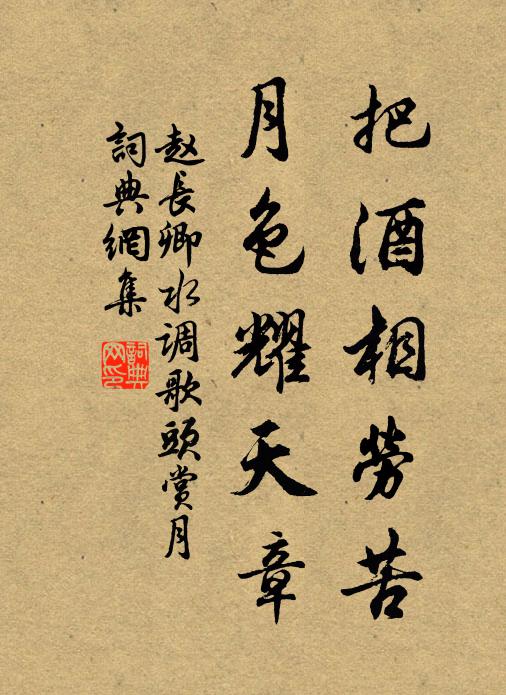 把酒相勞苦
月色耀天章
赵長卿水调歌頭賞月
詞典網集
詞典
网印